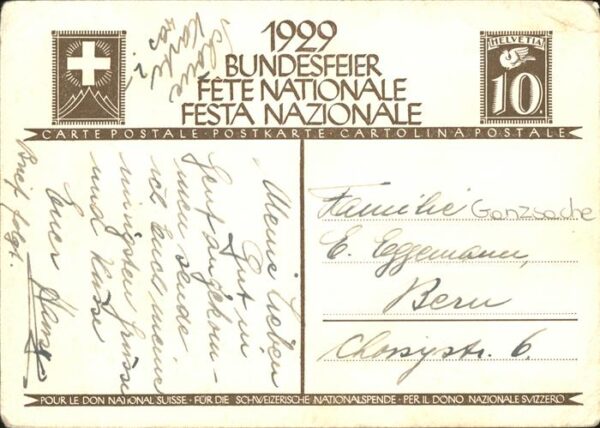 1929
BUNDESFEIER
FÊTE NATIONALE
FESTA NAZIONALE
HELVETIA
10
CARTE POSTALE · POSTKARTE · CARTOLINA POSTALE
Schöne
Karte
Meine Lieben
Gut in
Genf angekom-
men sende
ich Euch meine
innigsten Grüsse
und Küsse
Euer Hans
Brief folgt.
Familie Ganzsache
E. Eggemann,
Bern
Chossystr. 6.
POUR LE DON NATIONAL SUISSE · FÜR DIE SCHWEIZERISCHE NATIONALSPENDE · PER IL DONO NAZIONALE SVIZZERO